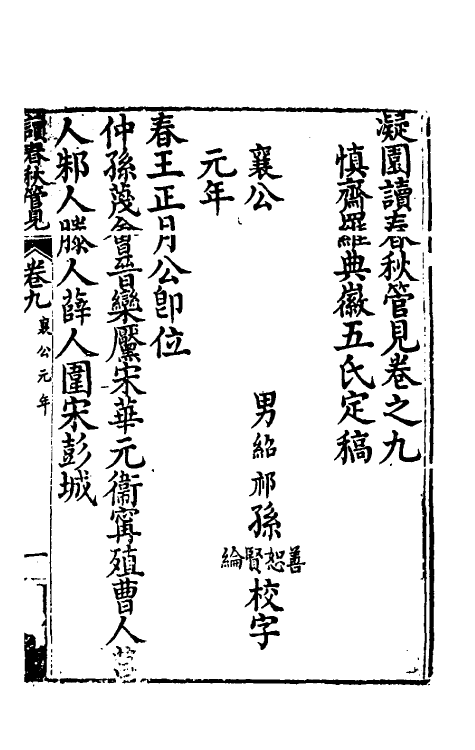 凝園讀春秋管見卷之九
慎齋羅典徽五氏定稿
襄公
男紹祁孫善恕賢綸校字
元年
春王正月公卽位
仲孫蔑會晉欒黶宋華元衞甯殖曹人莒
人邾人滕人薛人圍宋彭城
讀春秋管見
卷九
襄公元年
一